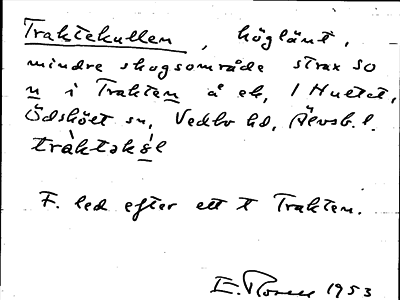 Traktekullen, höglänt,
mindre skogsområde strax so
n i Trakten å ek, 1 Hultet,
Ödskölt sn, Vedbo hd, Älvsb. l.
F. led efter ett t Trakten.
1953